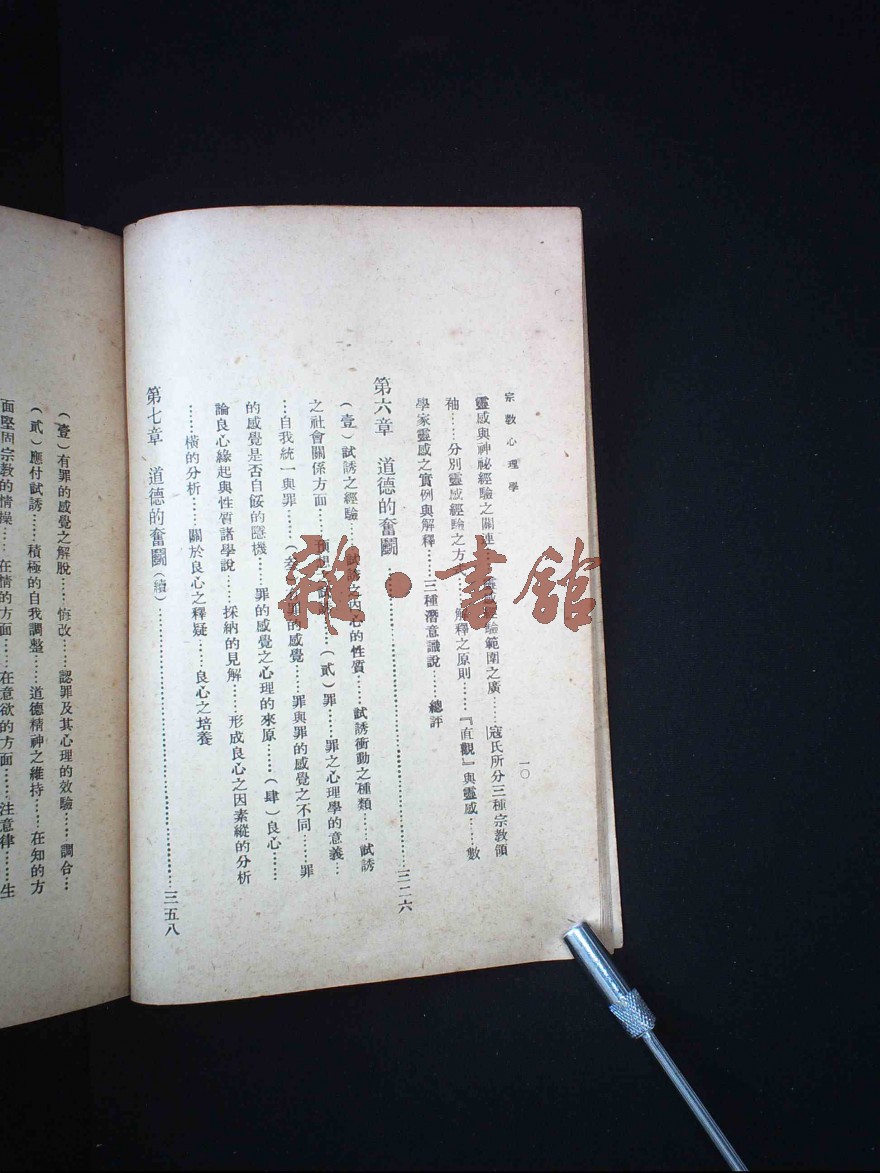 宗教心理學
一〇
靈感與神祕經驗之關連……靈感經驗範圍之廣……寇氏所分三種宗教領
袖……分別靈感經驗之方……解釋之原則……『直觀』與靈感……數
學家靈感之實例與解釋……三種潛意識說……總評
第六章 道德的奮鬭……三二六
(壹)試誘之經驗……試誘之內心的性質……試誘衝動之種類……試誘
之社會關係方面……預想……(貳)罪……罪之心理學的意義…
…自我統一與罪……(叁)罪的感覺……罪與罪的感覺之不同……罪
的感覺是否自餒的隱機……罪的感覺之心理的來原……(肆)良心……
論良心緣起與性質諸學說……採納的見解……形成良心之因素縱的分析
……橫的分析……關於良心之釋疑……良心之培養
第七章 道德的奮鬭(續)……三五八
(壹)有罪的感覺之解脫……悔改……認罪及其心理的效驗……調合…
(貳)應付試誘……積極的自我調整……道德精神之維持……在知的方
面堅固宗教的情操……在情的方面……在意欲的方面……注意律……生
雜·書館